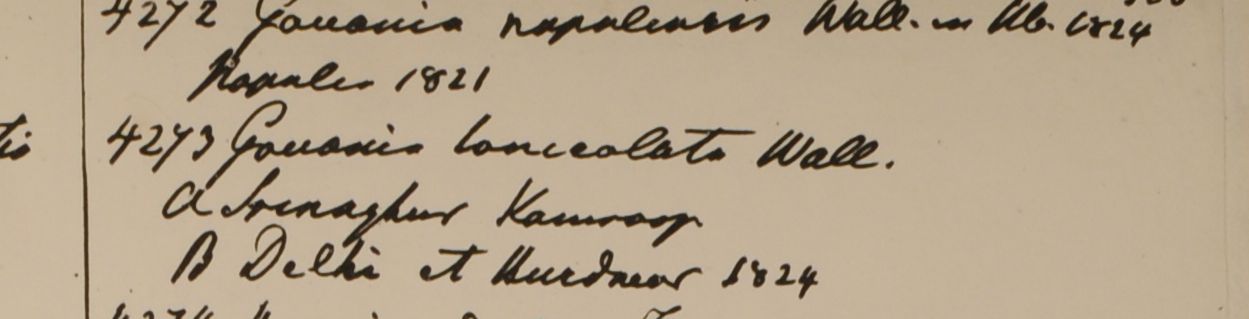 4272 Gouania napalensis Wall. in Hb. 1824
Napalia 1821
tis
4273 Gouania lanceolata Wall.
a Srinaghur Kamroop
B Delhi et Hurdwar 1824